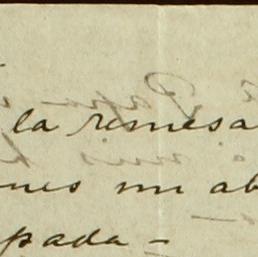 la remesa
nes un ab
pada -